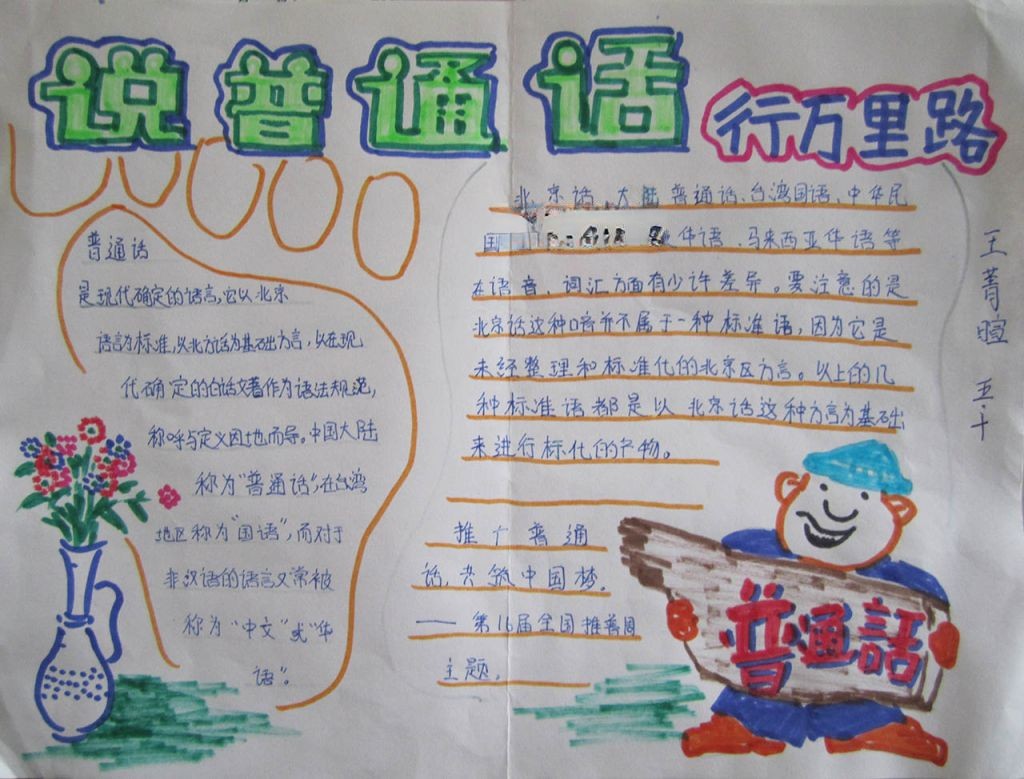 说普通话
行万里路
普通话
是现代确定的语言,它以北京
语言为标准,以北方话为基础方言,以在现
代确定的白话文著作为语法规范,
称呼与定义因地而导。中国大陆
称为“普通话”,在台湾
地区称为“国语”,而对于
非汉语的语言又常被
称为“中文”或“华
语”。
北京话、大陆普通话、台湾国语、中华民
国 华语、马来西亚华语等
在语音、词汇方面有少许差异。要注意的是
北京话这种口音并不属于一种标准语,因为它是
未经整理和标准化的北京区方言。以上的几
种标准语都是以北京话这种方言为基础
来进行标化的产物。
推广普通
话,共筑中国梦。
——第16届全国推普周
主题。
普通話
王菁暄 五十